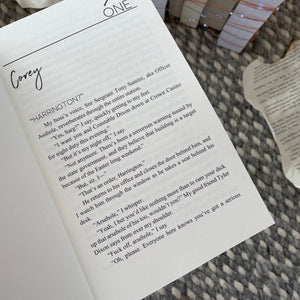 ONE
Corey
"HARRINGTON!"
My boss's voice, for Sergeant Tony Santini, aka Officer
Asshole, reverberates through the entire station.
"Yes, Sarg!" I say, quickly getting to my feet.
"I want you and Constable Dixon down at Crown Casino
for night duty this evening."
"But it's my night off," I say.
"Not anymore. There's been a terrorism warning issued by
the state government, and they believe that building is a target
because of the Easter long weekend."
"But, sir, I—"
"That's an order, Harrington."
He returns to his office and closes the door behind him, and
I watch him through the window as he takes a seat behind his
desk.
"Arsehole," I whisper.
"Yeah, I bet you'd like nothing more than to ram your dick
up that arsehole of his too, wouldn't you?" My good friend Tyler
Dixon says from over my shoulder.
"Fuck off, arsehole," I say.
"Oh, please. Everyone here knows you've got a serious